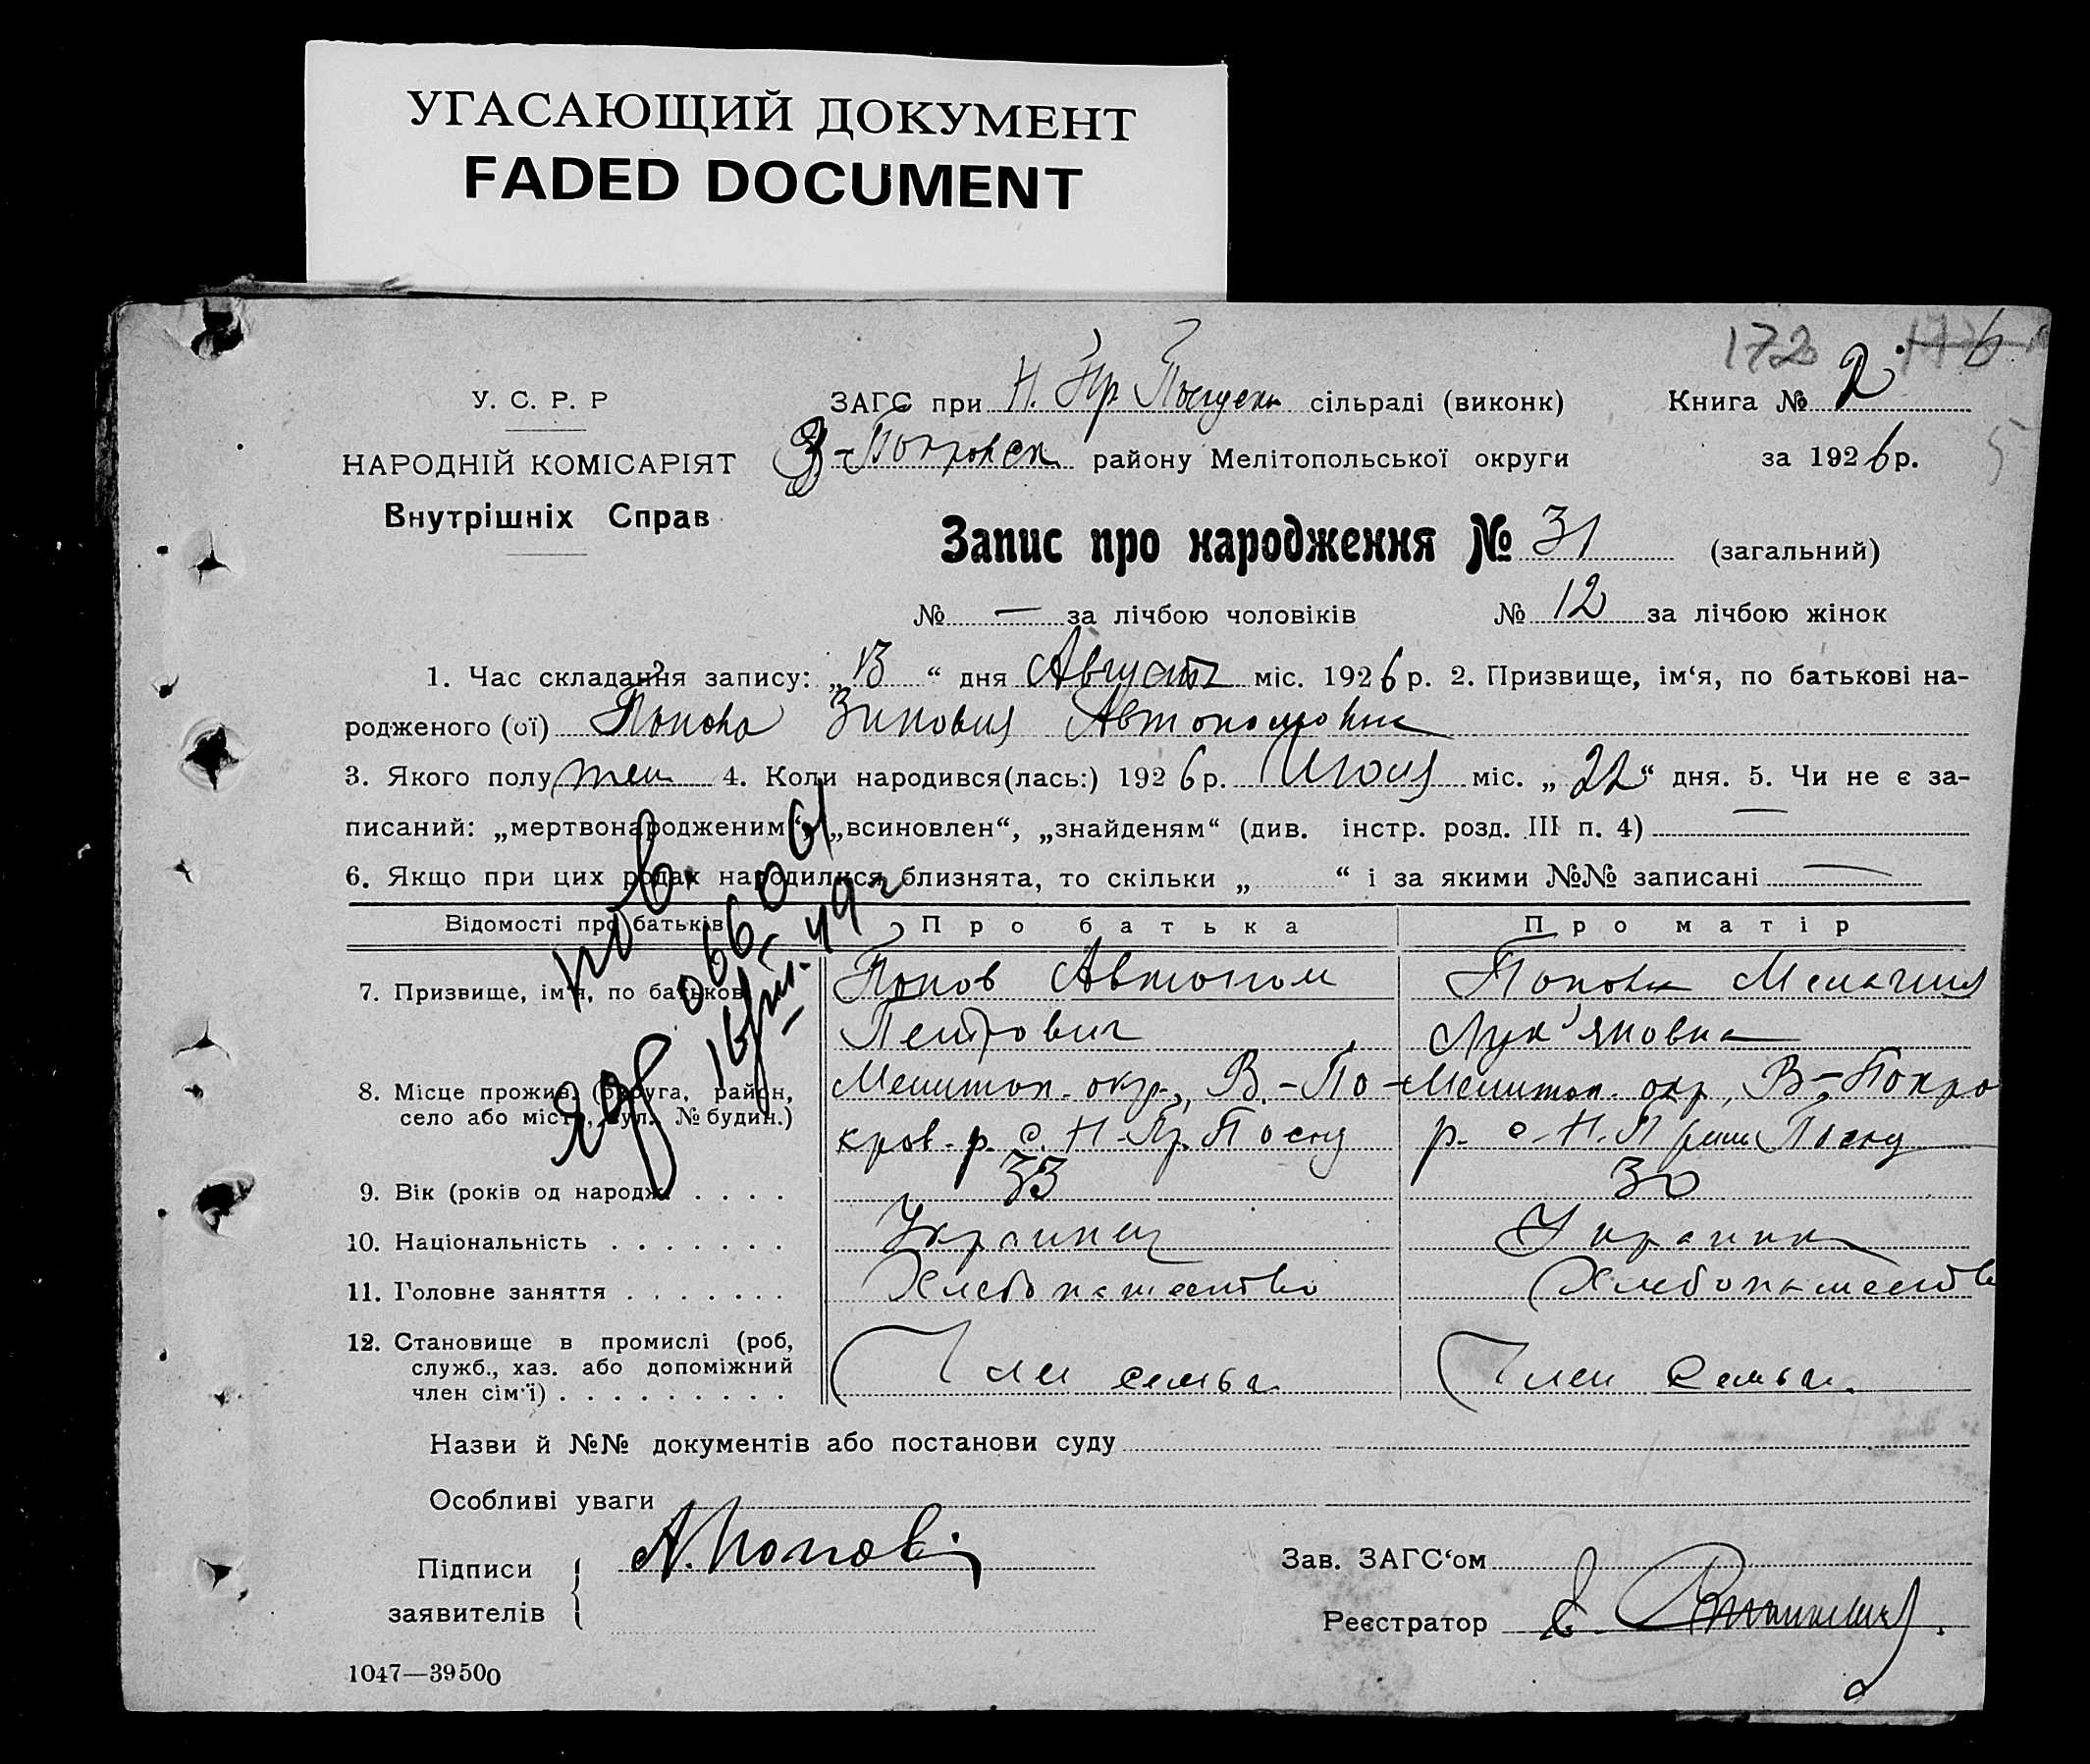 УГАСАЮЩИЙ ДОКУМЕНТ
FADED DOCUMENT
172
У. С. Р. Р
НАРОДНІЙ КОМІСАРІЯТ
Внутрішніх Справ
ЗАГС при Н. Пр сільраді (виконк)
Книга № 2
В-Покровск району Мелітопольської округи
за 1926 р.
Запис про народження № 31 (загальний)
№ — за лічбою чоловіків № 12 за лічбою жінок
1. Час складання запису: „13“ дня Август міс. 1926 р. 2. Призвище, ім‘я, по батькові на-
родженого (ої) Попова Зиновия Автономовна
3. Якого полу жен 4. Коли народився(лась:) 1926 р. міс. „22“ дня. 5. Чи не є за-
писаний: „мертвонародженим“, „всиновлен“, „знайденям“ (див. інстр. розд. III п. 4) —
6. Якщо при цих родах народилися близнята, то скільки „ “ і за якими №№ записані —
Відомості про батьків
Про батька
Про матір
7. Призвище, ім‘я, по батькові
Попов Автоном
Петрович
Попова Мелания
Лук’яновна
8. Місце прожив. (округа, район,
село або місто, вул. № будин.)
Мелитоп. окр., В.-По-
кров. р. с. Н-Пр. Посну
Мелитоп. окр, В-Покро
р. с. Н. П
9. Вік (років од народж.
33
30
10. Національність
Украинец
Украинка
11. Головне заняття
Хлебопашество
Хлебопашеств
12. Становище в промислі (роб,
служб., хаз. або допоміжний
член сім‘ї)
Член семьи
Член семьи.
Назви й №№ документів або постанови суду
Особливі уваги
Підписи
заявителів
А. Попов
Зав. ЗАГС‘ом
Реєстратор
1047—39500